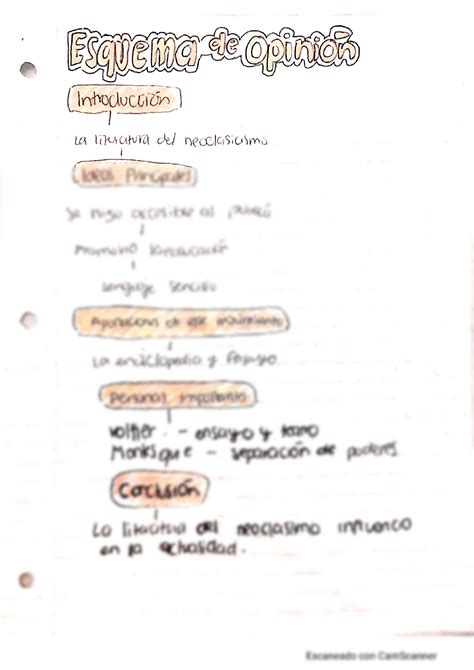 Esquema de opinión
Introducción
La literatura del neoclasicismo
Ideas Principales
Se hizo accesible al
Promovió la educación
lenguaje sencillo
Aportaciones de ese movimiento
La enciclopedia y
personas importantes
- ensayo y
- separación de poderes
Conclusión
La literatura del neoclasismo influenco
en la actualidad.
Escaneado con CamScanner